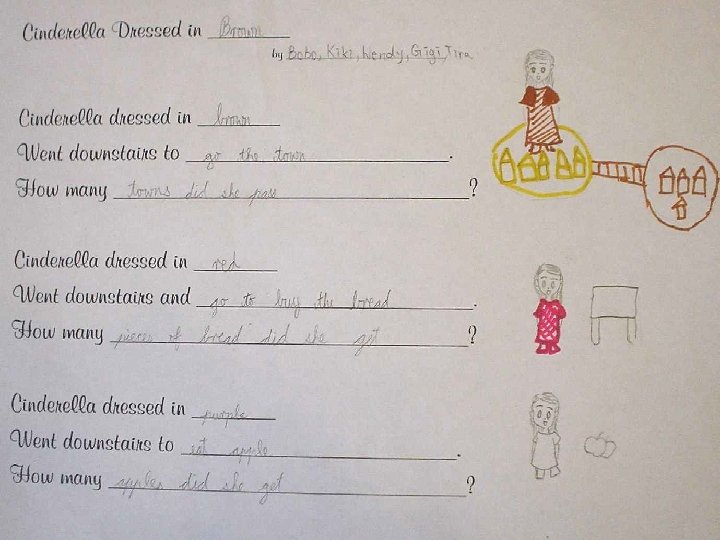 Cinderella Dressed in Brown
by Bobo, Kiki, Wendy, Gigi, Tina
Cinderella dressed in brown
Went downstairs to go the town.
How many towns did she pass?
Cinderella dressed in red
Went downstairs and go to buy the bread.
How many pieces of bread did she get?
Cinderella dressed in purple
Went downstairs to eat apple.
How many apples did she get?